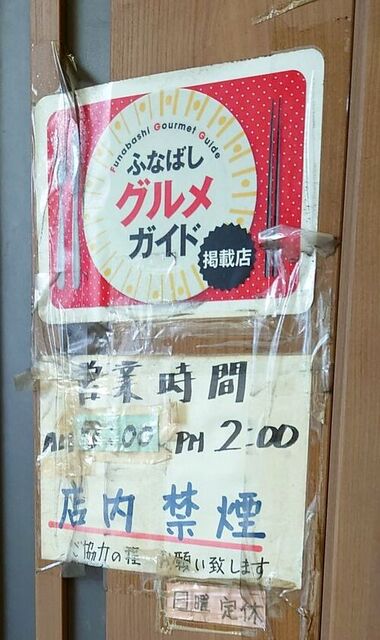 Funabashi Gourmet Guide
ふなばし
グルメ
ガイド
掲載店
営業時間
AM :00 PM 2:00
店内禁煙
ご協力の程 お願い致します
日曜定休